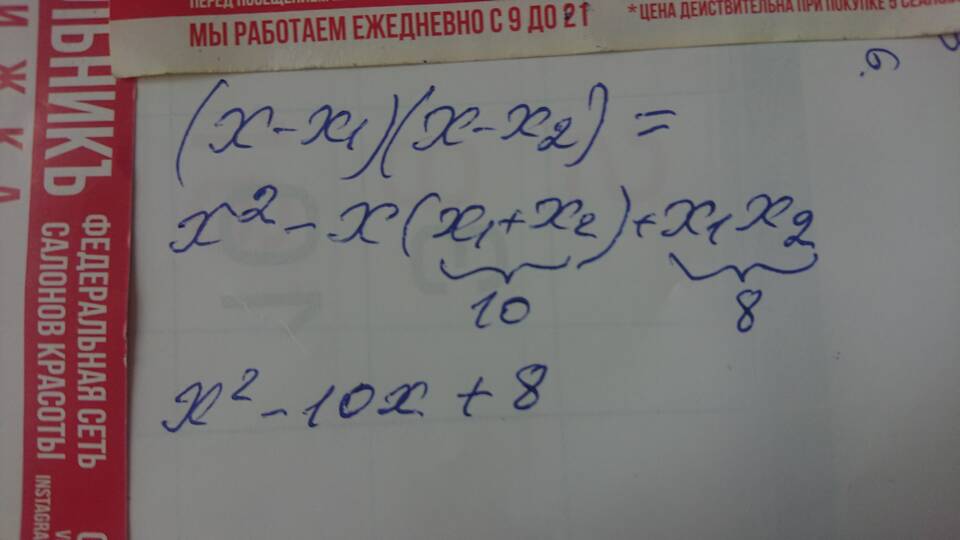 МЫ РАБОТАЕМ ЕЖЕДНЕВНО С 9 ДО 21
*ЦЕНА ДЕЙСТВИТЕЛЬНА ПРИ ПОКУПКЕ 5
ЛЬНИКЪ
ФЕДЕРАЛЬНАЯ СЕТЬ
САЛОНОВ КРАСОТЫ
INSTAGRA
(x-x1)(x-x2)=
x²-x(x1+x2)+x1x2
10 8
x²-10x+8